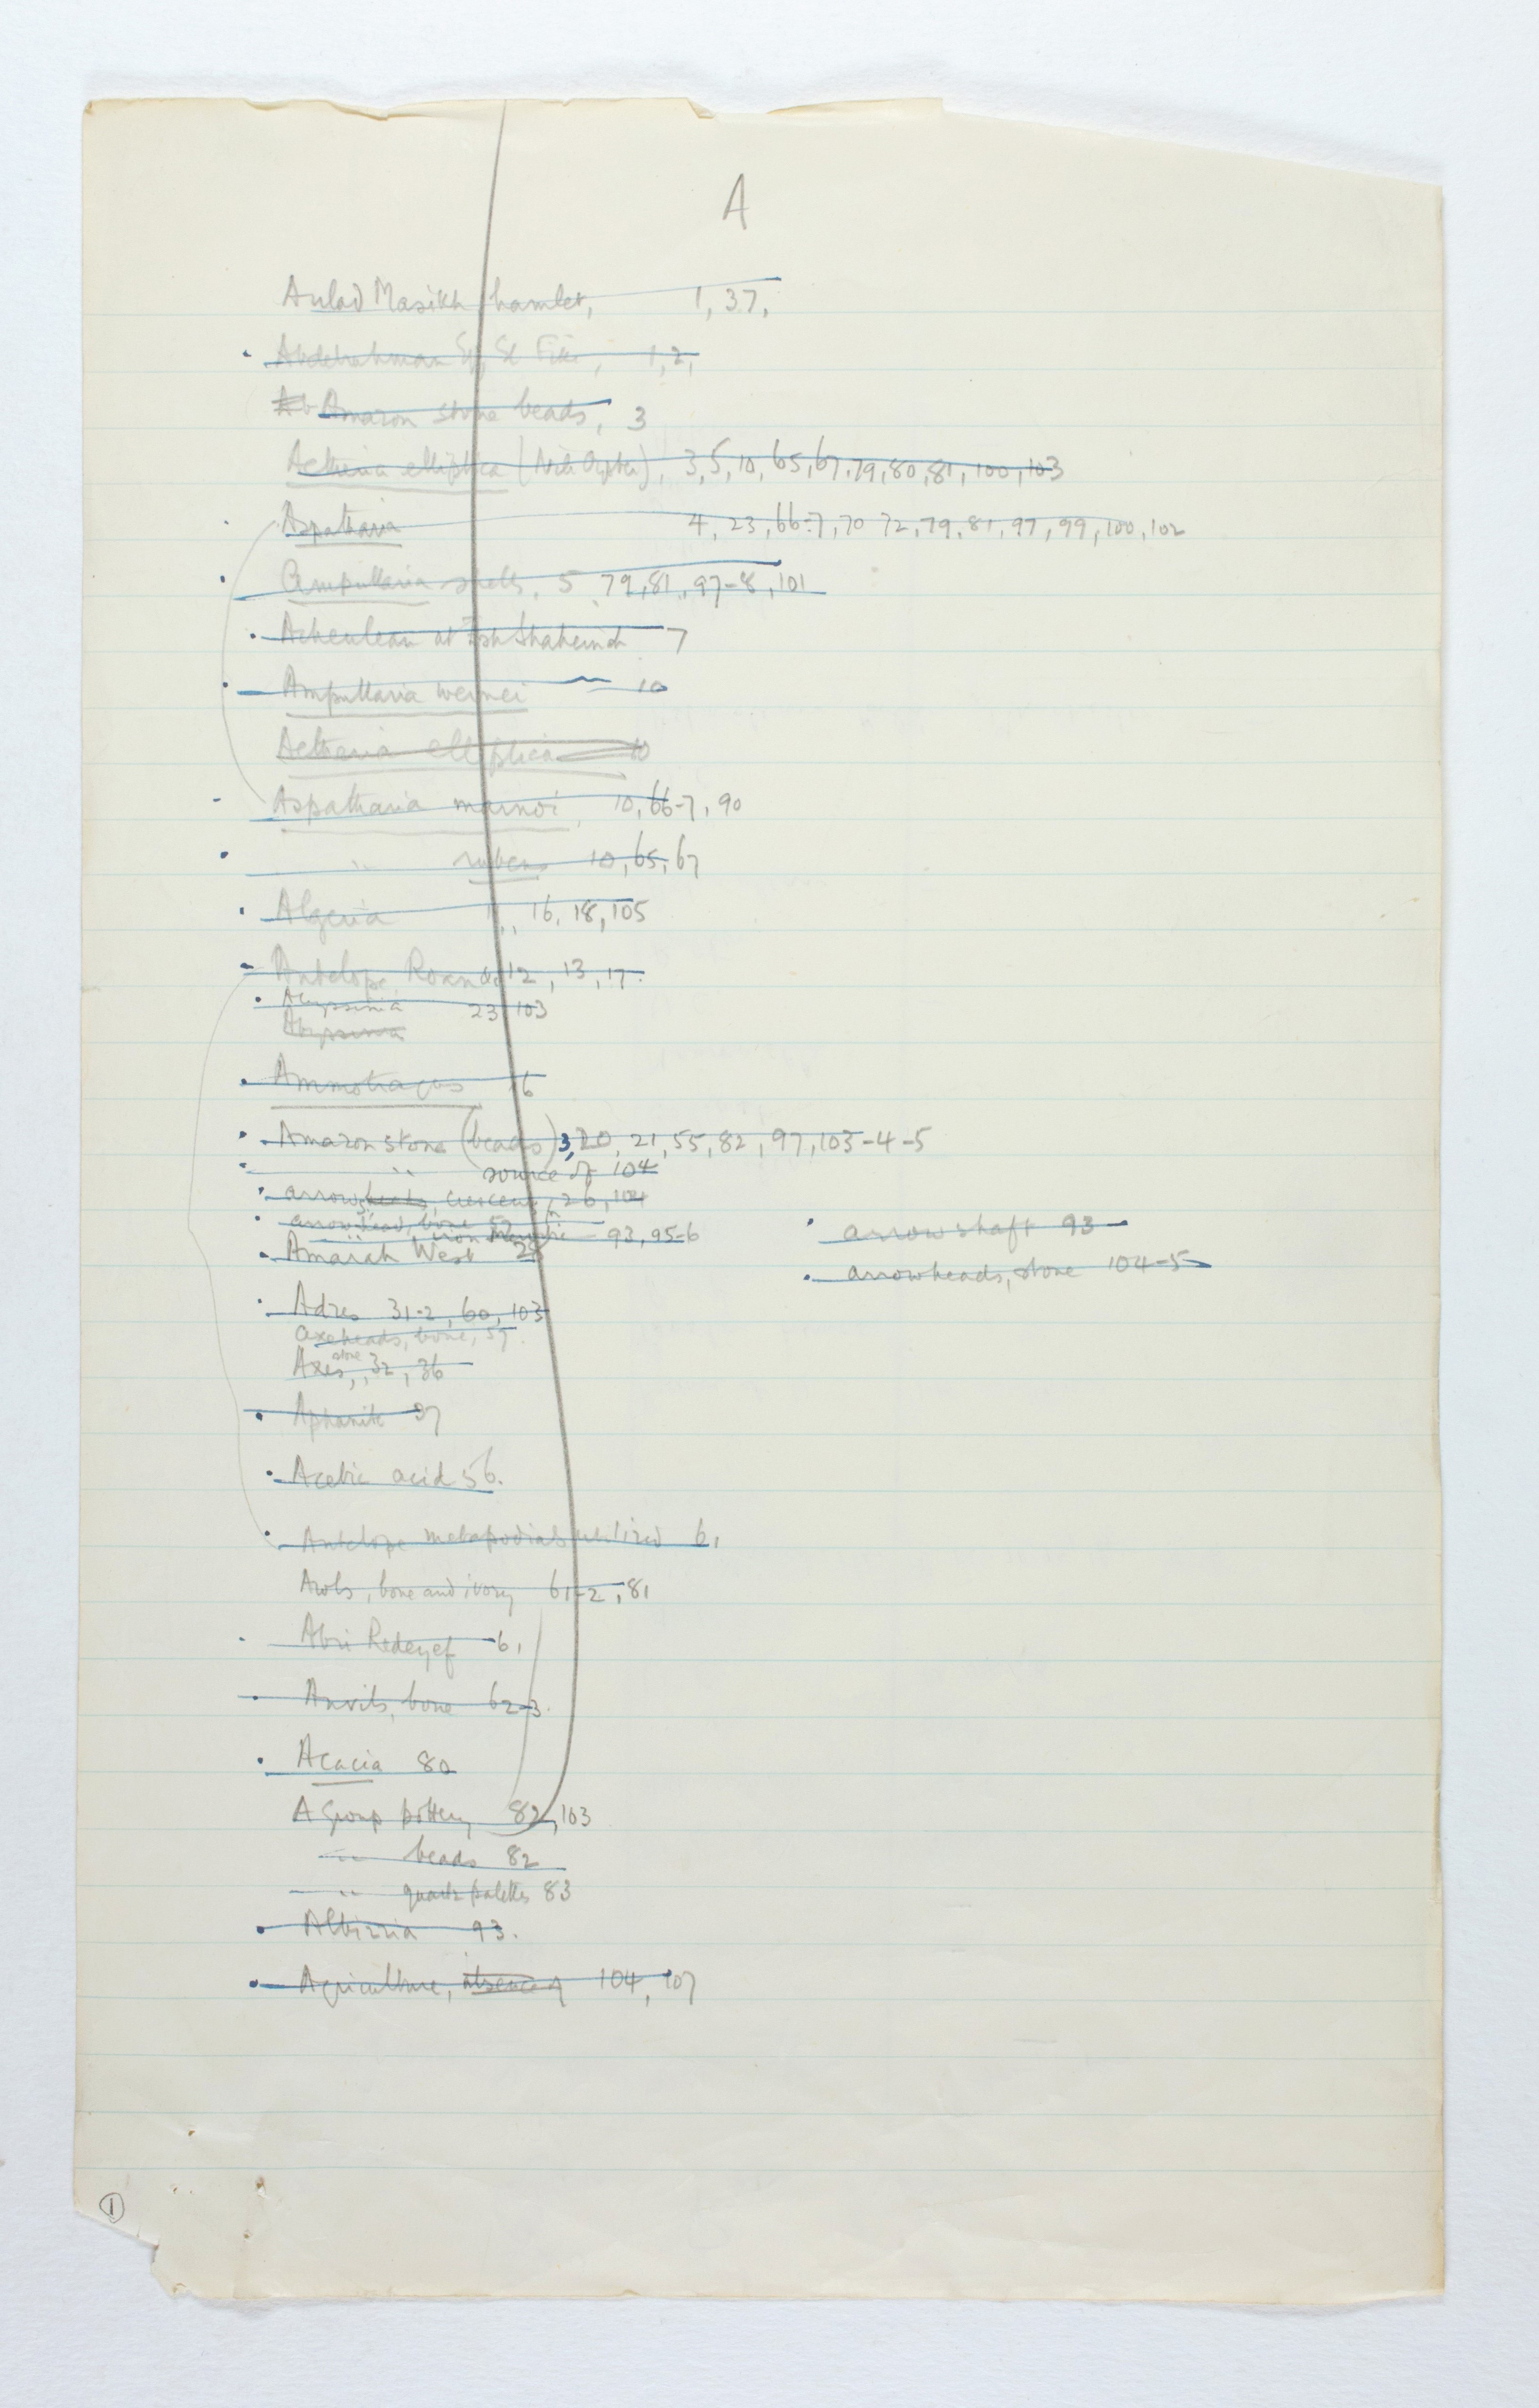 A
Aulad Masikh hamlet, 1, 37,
Abdelrahman 1, 2,
Amazon stone beads, 3
Aetheria elliptica (Nile Oyster), 3, 5, 10, 65, 67, 79, 80, 81, 100, 103
Aspatharia 4, 23, 66-7, 70 72, 79, 81, 97, 99, 100, 102
Ampullaria shells, 5, 79, 81, 97-8, 101
Acheulean at Esh Shaheinab 7
Ampullaria wernei 10
Aetheria elliptica 10
Aspatharia marnoi, 10, 66-7, 90
" rubens 10, 65, 67
Algeria 16, 18, 105
Antelope, Roan 12, 13, 17.
Abyssinia 23, 103
Abyssinia
Ammotragus 16
Amazon stone (beads) 3, 20, 21, 55, 82, 97, 103-4-5
" source of 104
arrowheads, crescent, 26, 104
arrowhead, bone 59
" iron 93, 95-6
arrow shaft 93
Amarah West
arrowheads, stone 104-5
Adzes 31-2, 60, 103
axeheads, bone, 59.
Axes, stone, 32, 36
Aphanite 37
Acetic acid 56.
Antelope metapodials utilized 61
Awls, bone and ivory 61-2, 81
Abri Redeyef 61
Anvils, bone 62-3.
Acacia 80
A Group pottery 82, 103
" beads 82
" quartz palettes 83
Albizzia 93.
Agriculture, absence of 104, 107
1